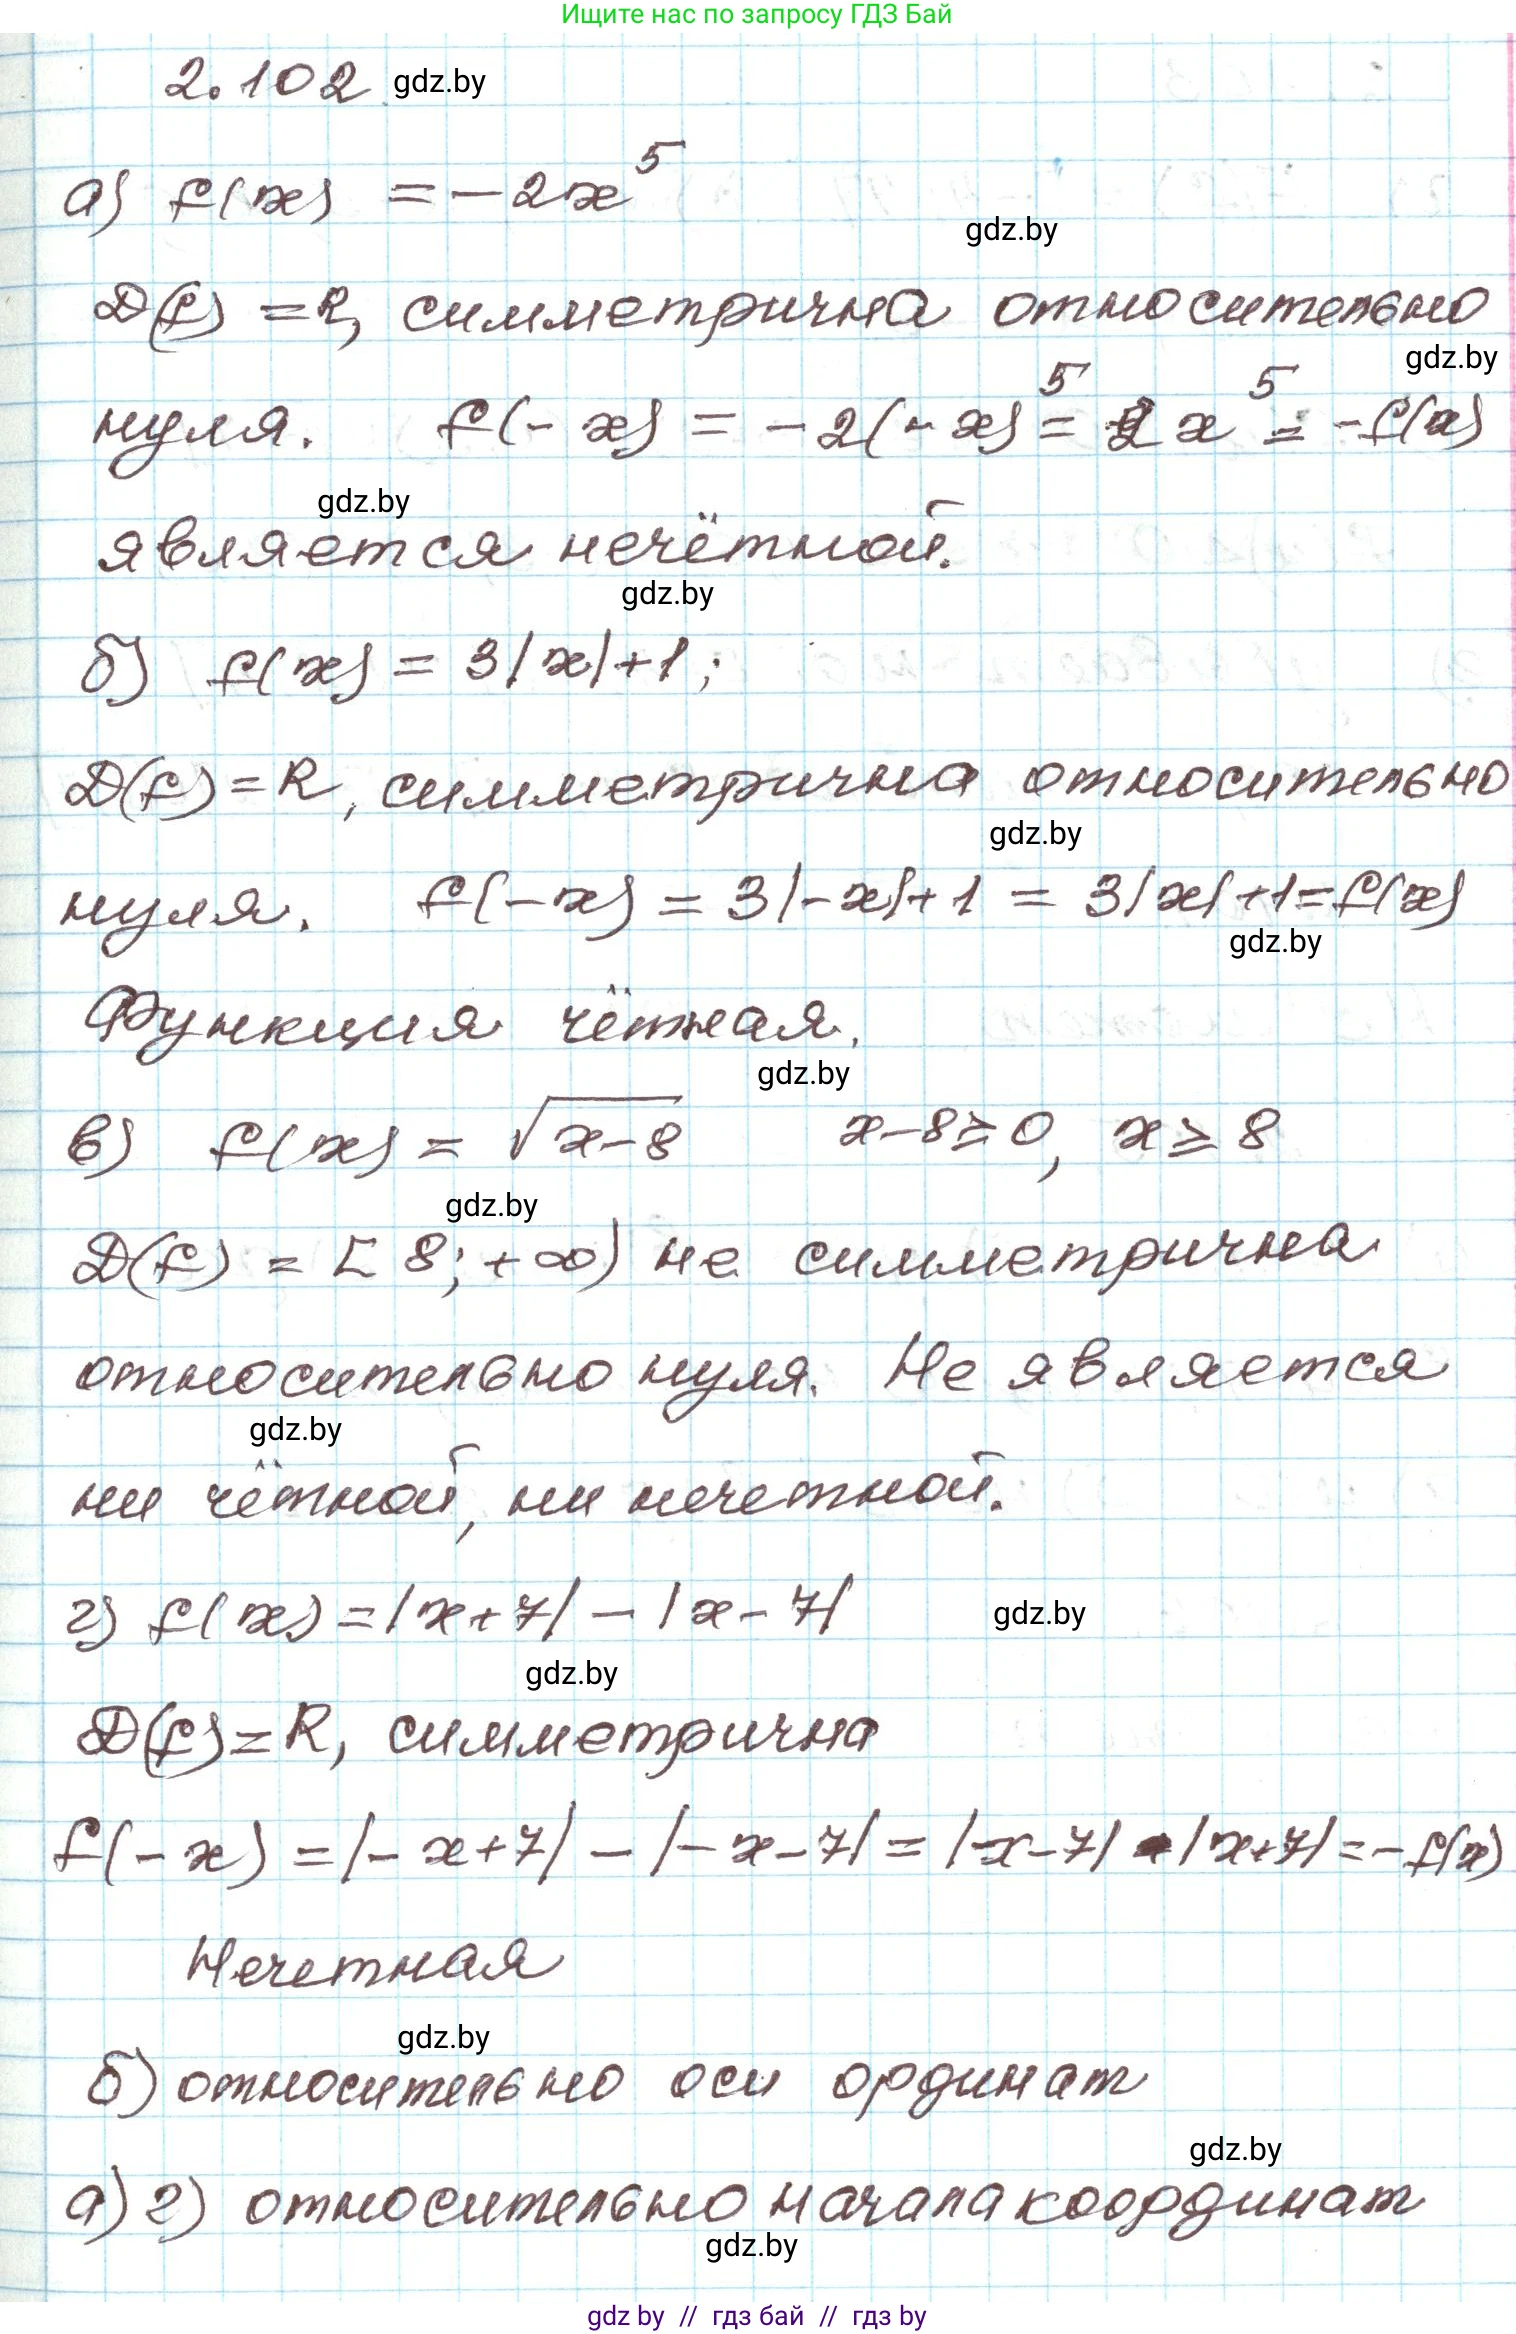 Ищите нас по запросу ГДЗ Бай
2.102 gdz.by
а) f(x) = -2x⁵
gdz.by
D(f) = R, симметрична относительно
gdz.by
нуля. f(-x) = -2(-x)⁵ = 2x⁵ = -f(x)
gdz.by
является нечётной.
gdz.by
б) f(x) = 3|x|+1;
D(f) = R, симметрична относительно
gdz.by
нуля. f(-x) = 3|-x|+1 = 3|x|+1=f(x)
gdz.by
Функция чётная.
gdz.by
в) f(x) = √(x-8) x-8≥0, x ≥ 8
gdz.by
D(f) = [8; +∞) не симметрична
относительно нуля. Не является
gdz.by
ни чётной, ни нечетной.
г) f(x) = |x+7| - |x-7|
gdz.by
gdz.by
D(f)=R, симметрична
f(-x) = |-x+7| - |-x-7| = |x-7| - |x+7| = -f(x)
Нечетная
gdz.by
б) относительно оси ординат
gdz.by
а) г) относительно начала координат
gdz.by
gdz by // гдз бай // гдз by